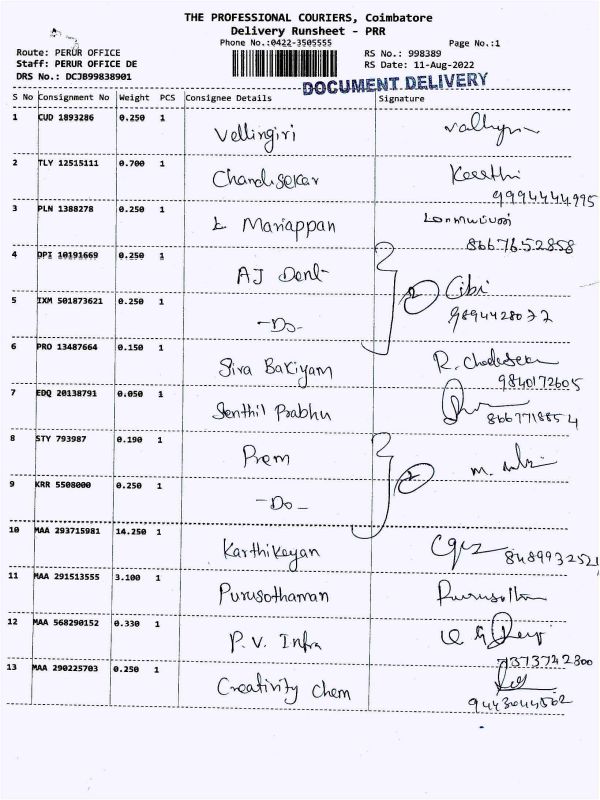 THE PROFESSIONAL COURIERS, Coimbatore
Delivery Runsheet - PRR
Phone No.:0422-3505555 Page No.:1
Route: PERUR OFFICE RS No.: 998389
Staff: PERUR OFFICE DE RS Date: 11-Aug-2022
DRS No.: DCJB99838901
DOCUMENT DELIVERY
S No Consignment No Weight PCS Consignee Details Signature
1 CUD 1893286 0.250 1 Vellingiri
2 TLY 12515111 0.700 1 Chandrsekar Keerthi
9994444995
3 PLN 1388278 0.250 1 L Mariappan மாரியப்பன்
8667652858
4 DPI 10191669 0.250 1 AJ Dent
2 Cibi
5 IXM 501873621 0.250 1 -Do- 9894428077
6 PRO 13487664 0.150 1 Siva Bakiyam R.
9840172605
7 EDQ 20138791 0.050 1 Senthil Prabhu
8667718854
8 STY 793987 0.190 1 Prem M.
2
9 KRR 5508000 0.250 1 -Do-
10 MAA 293715981 14.250 1 Karthikeyan 8489932521
11 MAA 291513555 3.100 1 Purusothaman
12 MAA 568290152 0.330 1 P.V. Infra
7373742800
13 MAA 290225703 0.250 1 Creativity Chem
9443044502